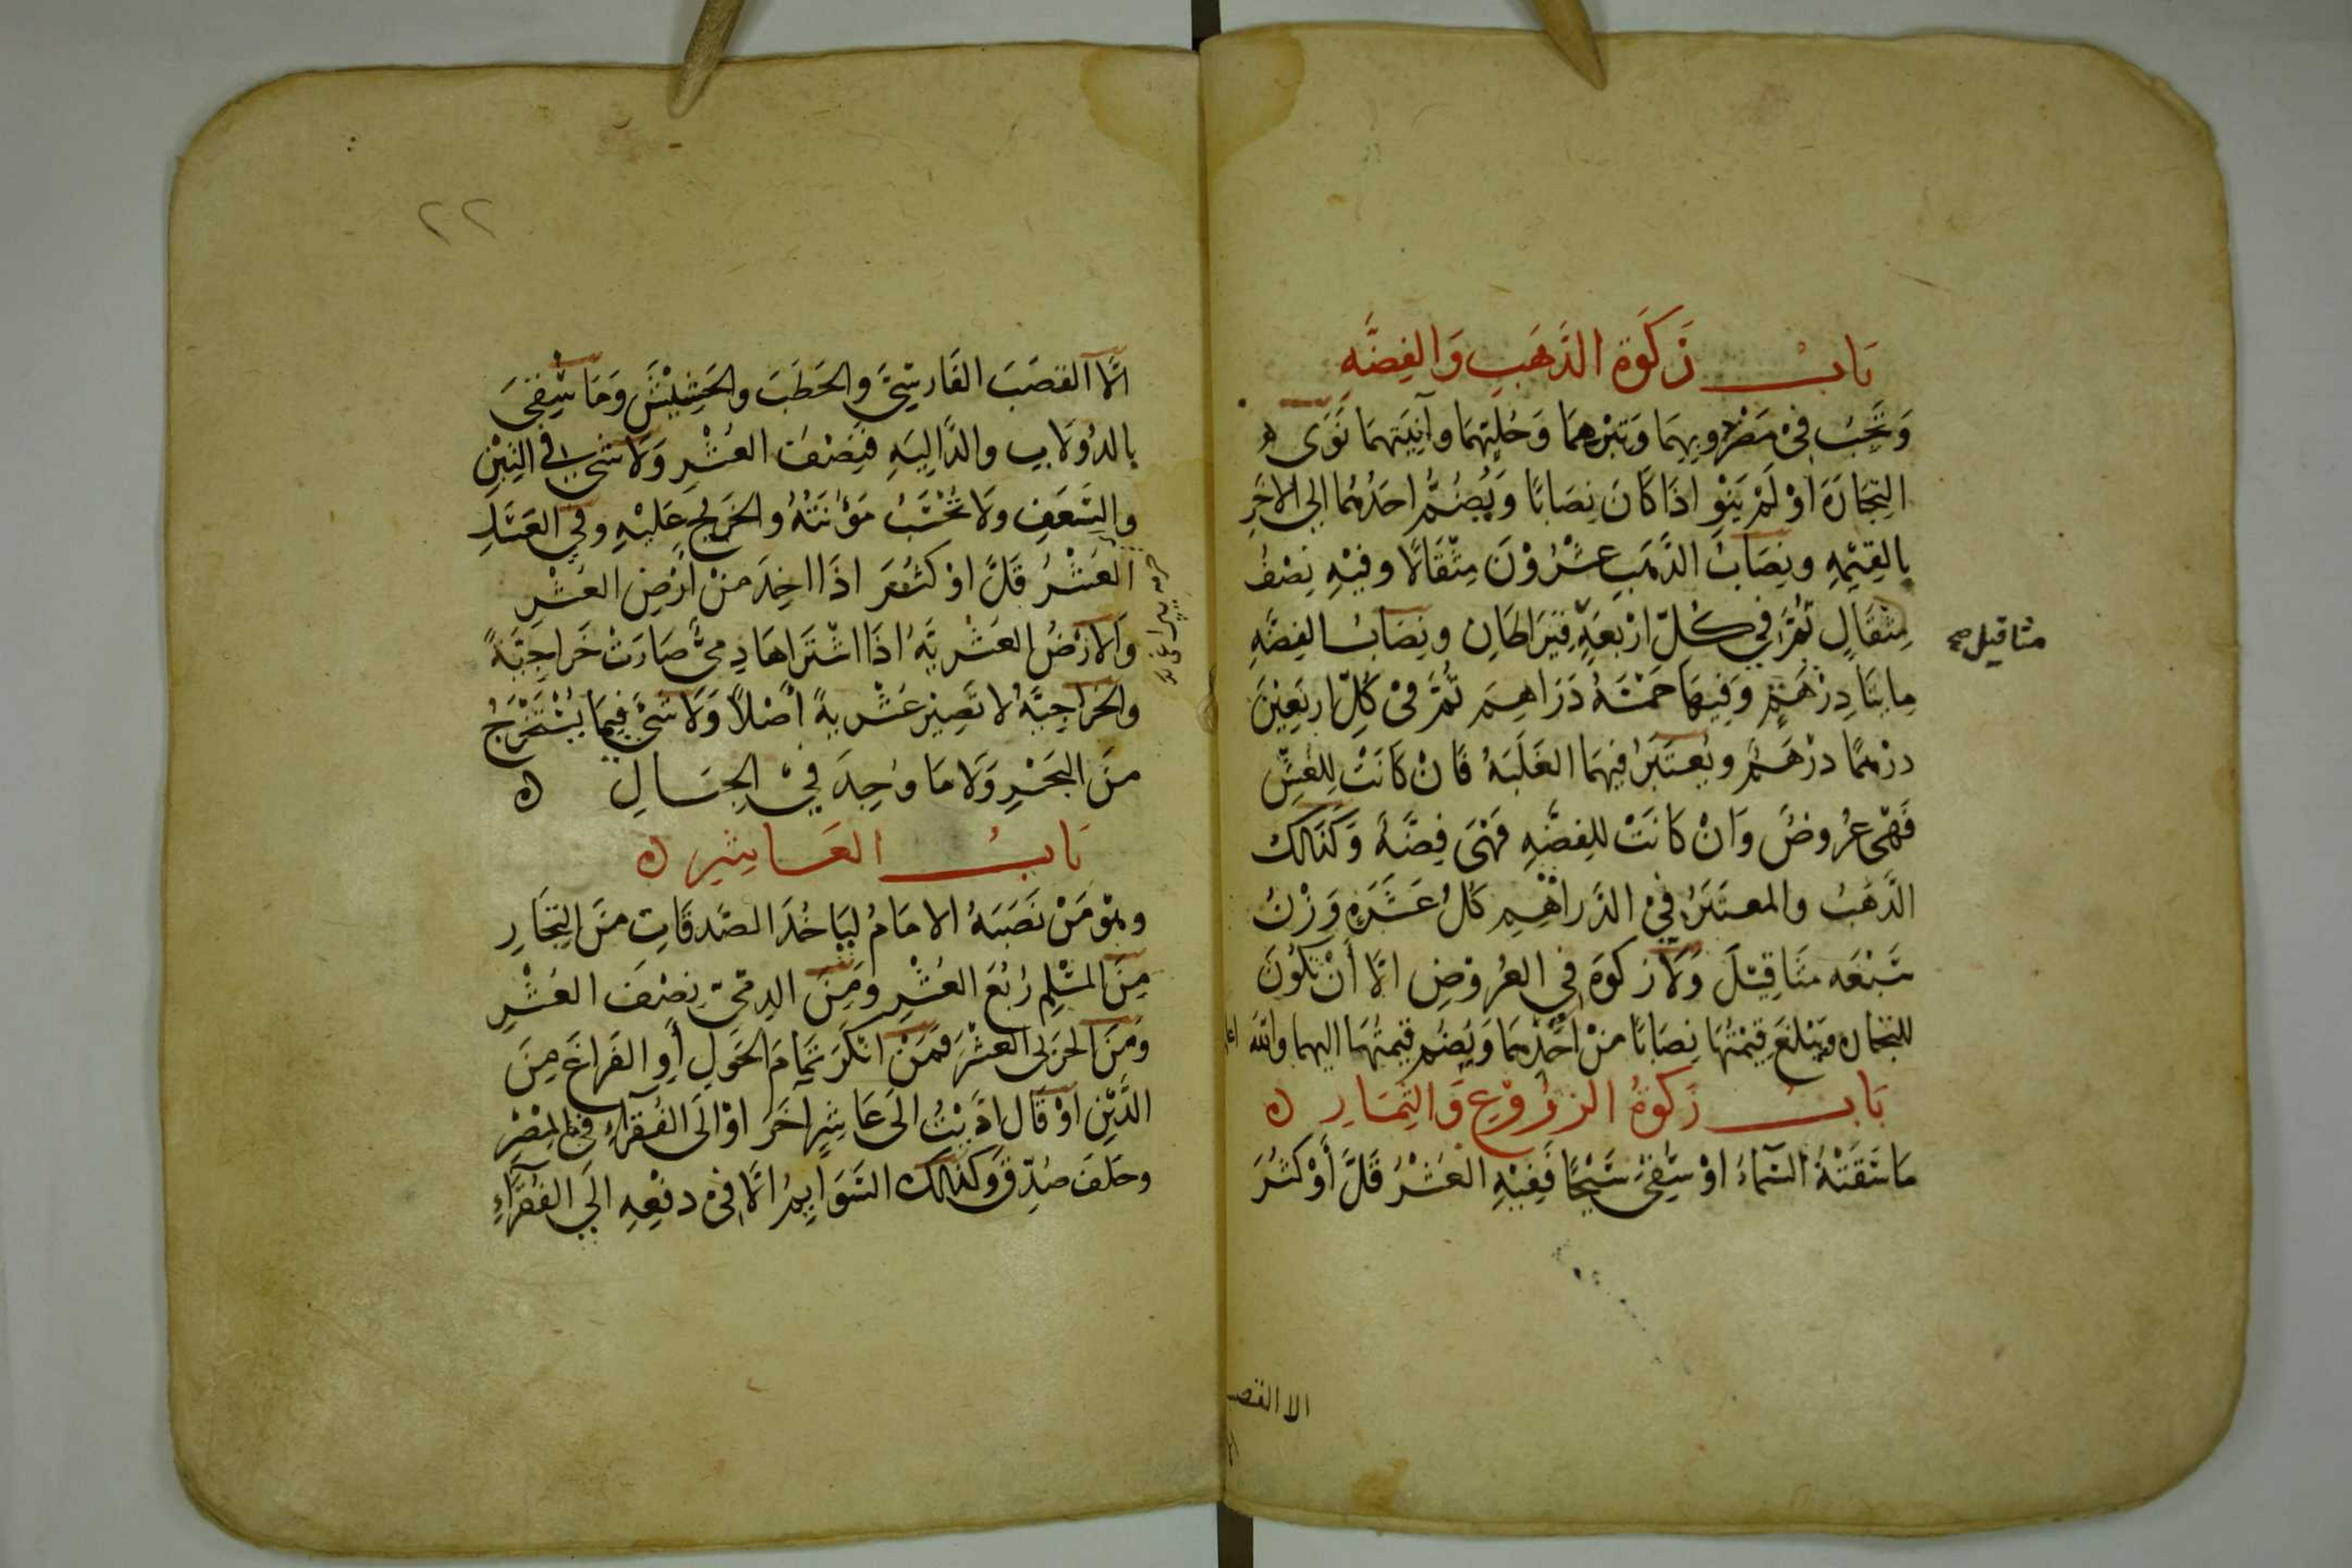 باب زكوة الذهب والفضه
وَتَجِبُ فِيْ مَضْرُوبِهِمَا وَتِبْرِهمَا وَحُلِيّهِمَا وآنِيَتهِمَا نَوَى
التِجَارَةَ اوْ لَمْ يَنْوِ اذَا كَانَ نِصَابًا وَيُضُمُّ احَدُهُمَا الى الاخَرِ
بِالقِيْمِهِ ونِصَابُ الذَّهَبِ عِشْرُوْنَ مِثْقَالًا وفيْهِ نِصْفُ
مِثْقَالٍ ثُمَّ فِي كُلّ ارْبَعَةٍ قِيَراطَانِ ونِصَابُ الفِضَّهِ
مثاقيل صح
مِايتَا دِرْهَمٍ وَفِيهَا خَمْسَهُ دَرَاهِمَ ثُمَّ فىْ كُلِّ اربَعِيْنَ
درْهمًا درْهَمٌ ويُعتَبَرُ فِيهمَا الغَلَبَهُ فَانْ كَانَتْ لِلْغُشِّ
فَهْىَ عُرُوضٌ وَانْ كَانَتْ للفِضَّهِ فَهْىَ فِضَّهٌ وَكَذَالكَ
الذَّهَبُ والمعتَبَرُ فِيْ الدَّراهِمِ كُلُّ عَشَرَهٍ وَزْنُ
سَبْعَه مثَاقِيْلَ وَلَا زكوَةَ فِي العُرُوضِ الَّا أَنْ تَكُونَ
للتجاره ويَبْلغَ قِيْمَتُهَا نِصَابًا مِنْ احَدِهمَا وَيُضُم قيمَتُهَا اليهما والله اعلم
بَابُ زكوةُ الزرُوْعِ وَالثِمَارِ ه
مَا سَقَتْهُ السَّمَاءُ اوْ سُقِىَ سَيْحًا فَفِيْهِ العُشْرُ قَلَّ أَوْ كَثُرَ
الا القصب
٢٢
الَّا القَصَبَ الفَارسِيَّ والحَطَبَ والحَشِيْشَ وَمَا سُقِىَ
بالدُوْلَابِ والدَّالِيَهِ فَنِصْفُ العُشْرِ وَلَا شَيْ في التِبْنِ
والسَّعَفِ ولَا تُحْتَسَبُ مَؤُنَتُهُ والخَرْجُ عَلَيْهِ وفي العَسَلِ
العُشْرُ قَلَّ اوْ كَثُرَ اذَا اخِذَ منْ أرْضِ العُشْرِ
وَالارْضُ العُشْريَّهُ اذَا اشْتَرَاهَا ذِمىٌّ صَارَتْ خَراجِيَّةً
والخَرَاجِيَّهُ لا تَصِيْرُ عُشْريةً أصْلاً وَلَا شَىْءَ فِيمَا يُسْتَخْرَجُ
منَ البَحْرِ وَلَا مَا وُجِدَ فِيْ الجِبَالِ ه
بَابُ العَاشِرِ ه
وهْوَ مَنْ نَصَبَهُ الامَامُ لِيَاخُذَ الصَّدقَاتِ مِنَ التِجَارِ
مِنَ المسْلِمِ رُبْعَ العُشْرِ ومِنَ الذِمّىِ نِصْفَ العُشْرِ
ومِنَ الحَرْبى العُشْرَ فَمَنْ انْكَرَ تَمَامَ الحَوْلِ أَوِ الفَراغَ مِنَ
الدَّيْنِ اوْ قَالَ ادَّيْتُ الَى عَاشِرٍ اخَرَ اوْ الَى الفُقَرَآءِ فِي المِصْرِ
وحَلَفَ صُدِّقَ وَكَذَالكَ السَّوَايِمُ الَّا فىْ دفْعِهِ الَي الفُقَرَآءِ